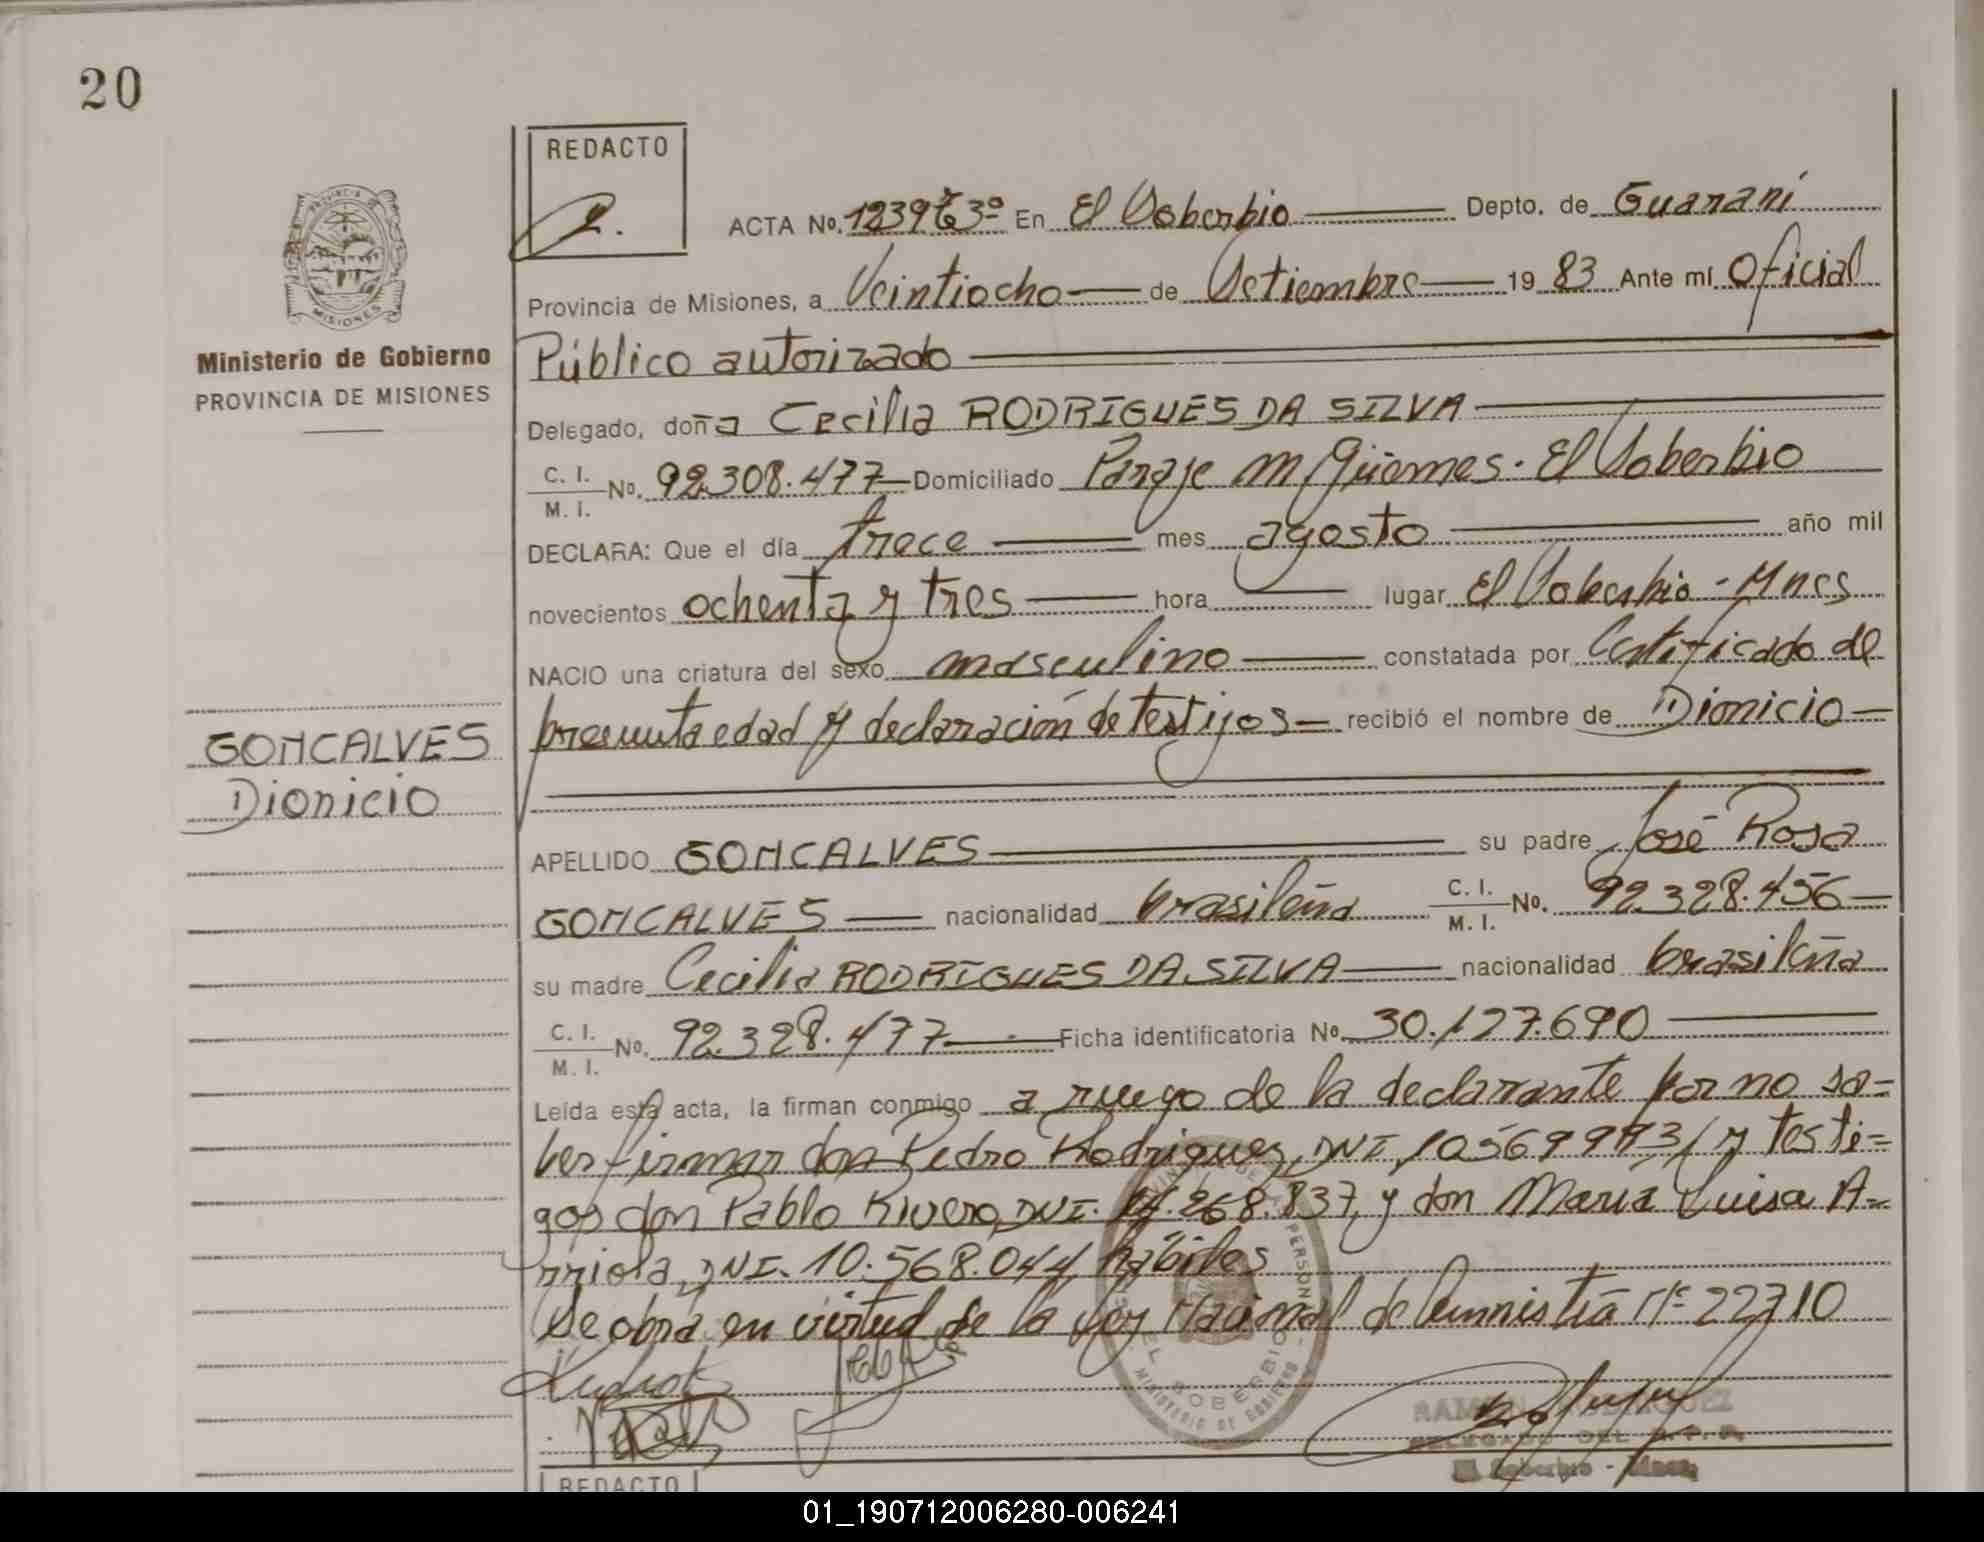 20
REDACTO
2.
ACTA No. 1239 Tº 3º En El Soberbio Depto. de Guaraní
Provincia de Misiones, a Veintiocho de Setiembre 19 83 Ante mí Oficial
Público autorizado
Delegado, doña Cecilia RODRIGUES DA SILVA
C. I.
M. I. No. 92.308.477 Domiciliado Paraje M Güemes. El Soberbio
DECLARA: Que el día trece mes agosto año mil
novecientos ochenta y tres hora lugar El Soberbio - Mnes
NACIO una criatura del sexo masculino constatada por Certificado de
presunta edad y declaración de testigos = recibió el nombre de Dionicio
APELLIDO GONCALVES su padre José Rosa
GONCALVES nacionalidad brasileña C. I. M. I. No. 92.328.456
su madre Cecilia RODRIGUES DA SILVA nacionalidad brasileña
C. I.
M. I. No. 92.328.477 Ficha identificatoria No. 30.127.690
Leída esta acta, la firman conmigo a ruego de la declarante por no sa=
ber firmar don Pedro Rodriguez, DNI, y testi=
gos don Pablo Rivero, DNI. 268.837, y don María Luisa A=
rriola, DNI. 10.568.044, hábiles
Se obra en virtud de la Ley Nacional de Amnistía Nº 22710
MISIONES
Ministerio de Gobierno
PROVINCIA DE MISIONES
GONCALVES
Dionicio
EL SOBERBIO
MINISTERIO DE GOBIERNO
El Soberbio - Mnes
REDACTO
01_190712006280-006241